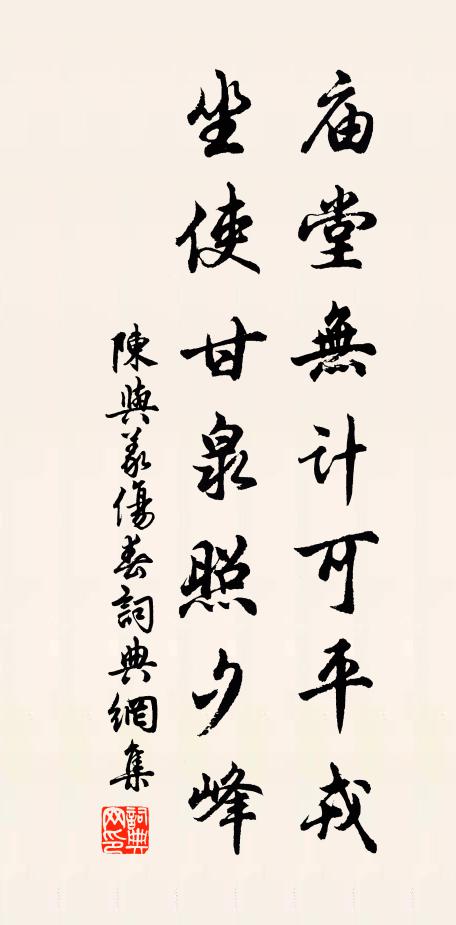 庙堂無计可平戎
坐使甘泉照夕峰
陳與義傷春詞典網集
詞典网印